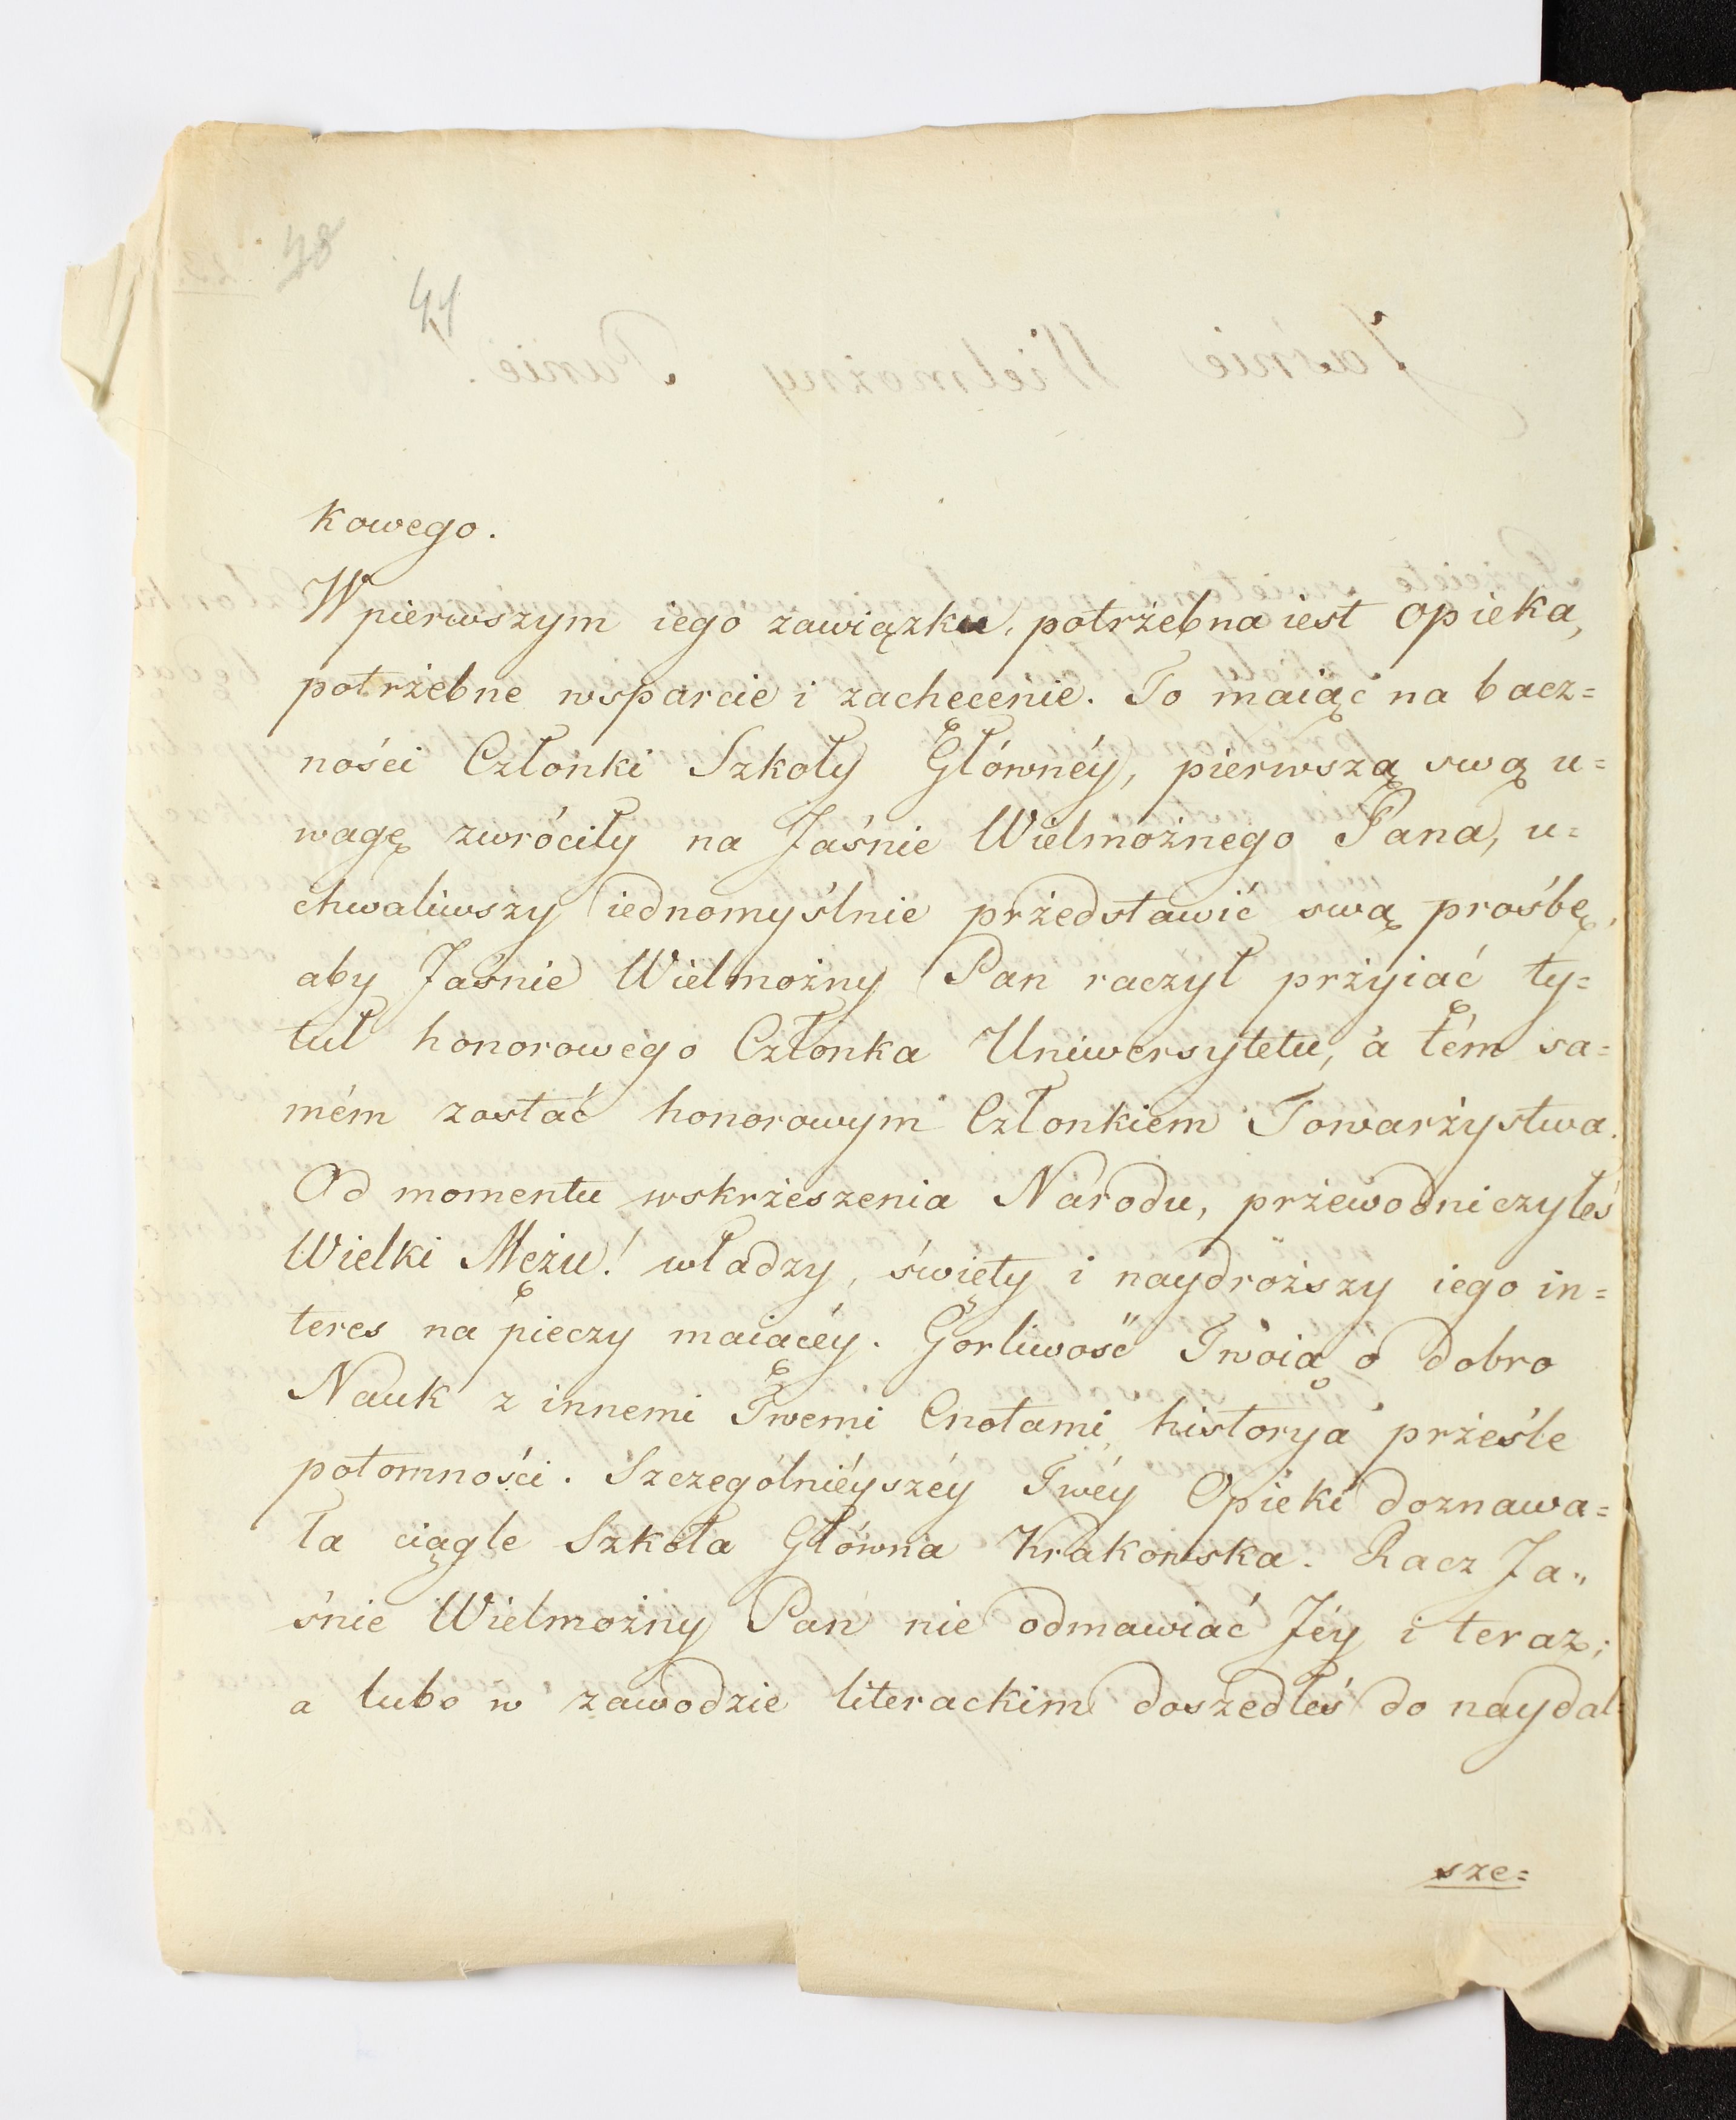 48
41
kowego.
W pierwszym iego zawiązku, potrżebna iest opieka,
potrżebne wsparcie i zachęcenie. To maiąc na bacz=
ności Członki Szkoły Główney, pierwszą swą u=
wagę zwróciły na Jaśnie Wielmożnego Pana, u=
chwaliwszy iednomyślnie prżedstawić swą prośbę,
aby Jaśnie Wielmożny Pan raczył prżyiąć ty=
tuł honorowego Członka Uniwersytetu, a tém sa=
mém zostać honorowym Członkiem Towarżystwa.
Od momentu wskrżeszenia Narodu, prżewodniczyłeś
Wielki Mężu! władzy, święty i naydroższy iego in=
teres na pieczy maiącéy. Gorliwość Twoią o dobro
Nauk z innemi Twemi Cnotami, historya prżeśle
potomności. Szczególniéyszéy Twéy Opieki doznawa=
ła ciągle Szkoła Główna Krakowska. Racz Ja„
śnie Wielmożny Pan nie odmawiać Jéy i teraz;
a lubo w zawodzie literackim doszedłeś do naydal
sze=